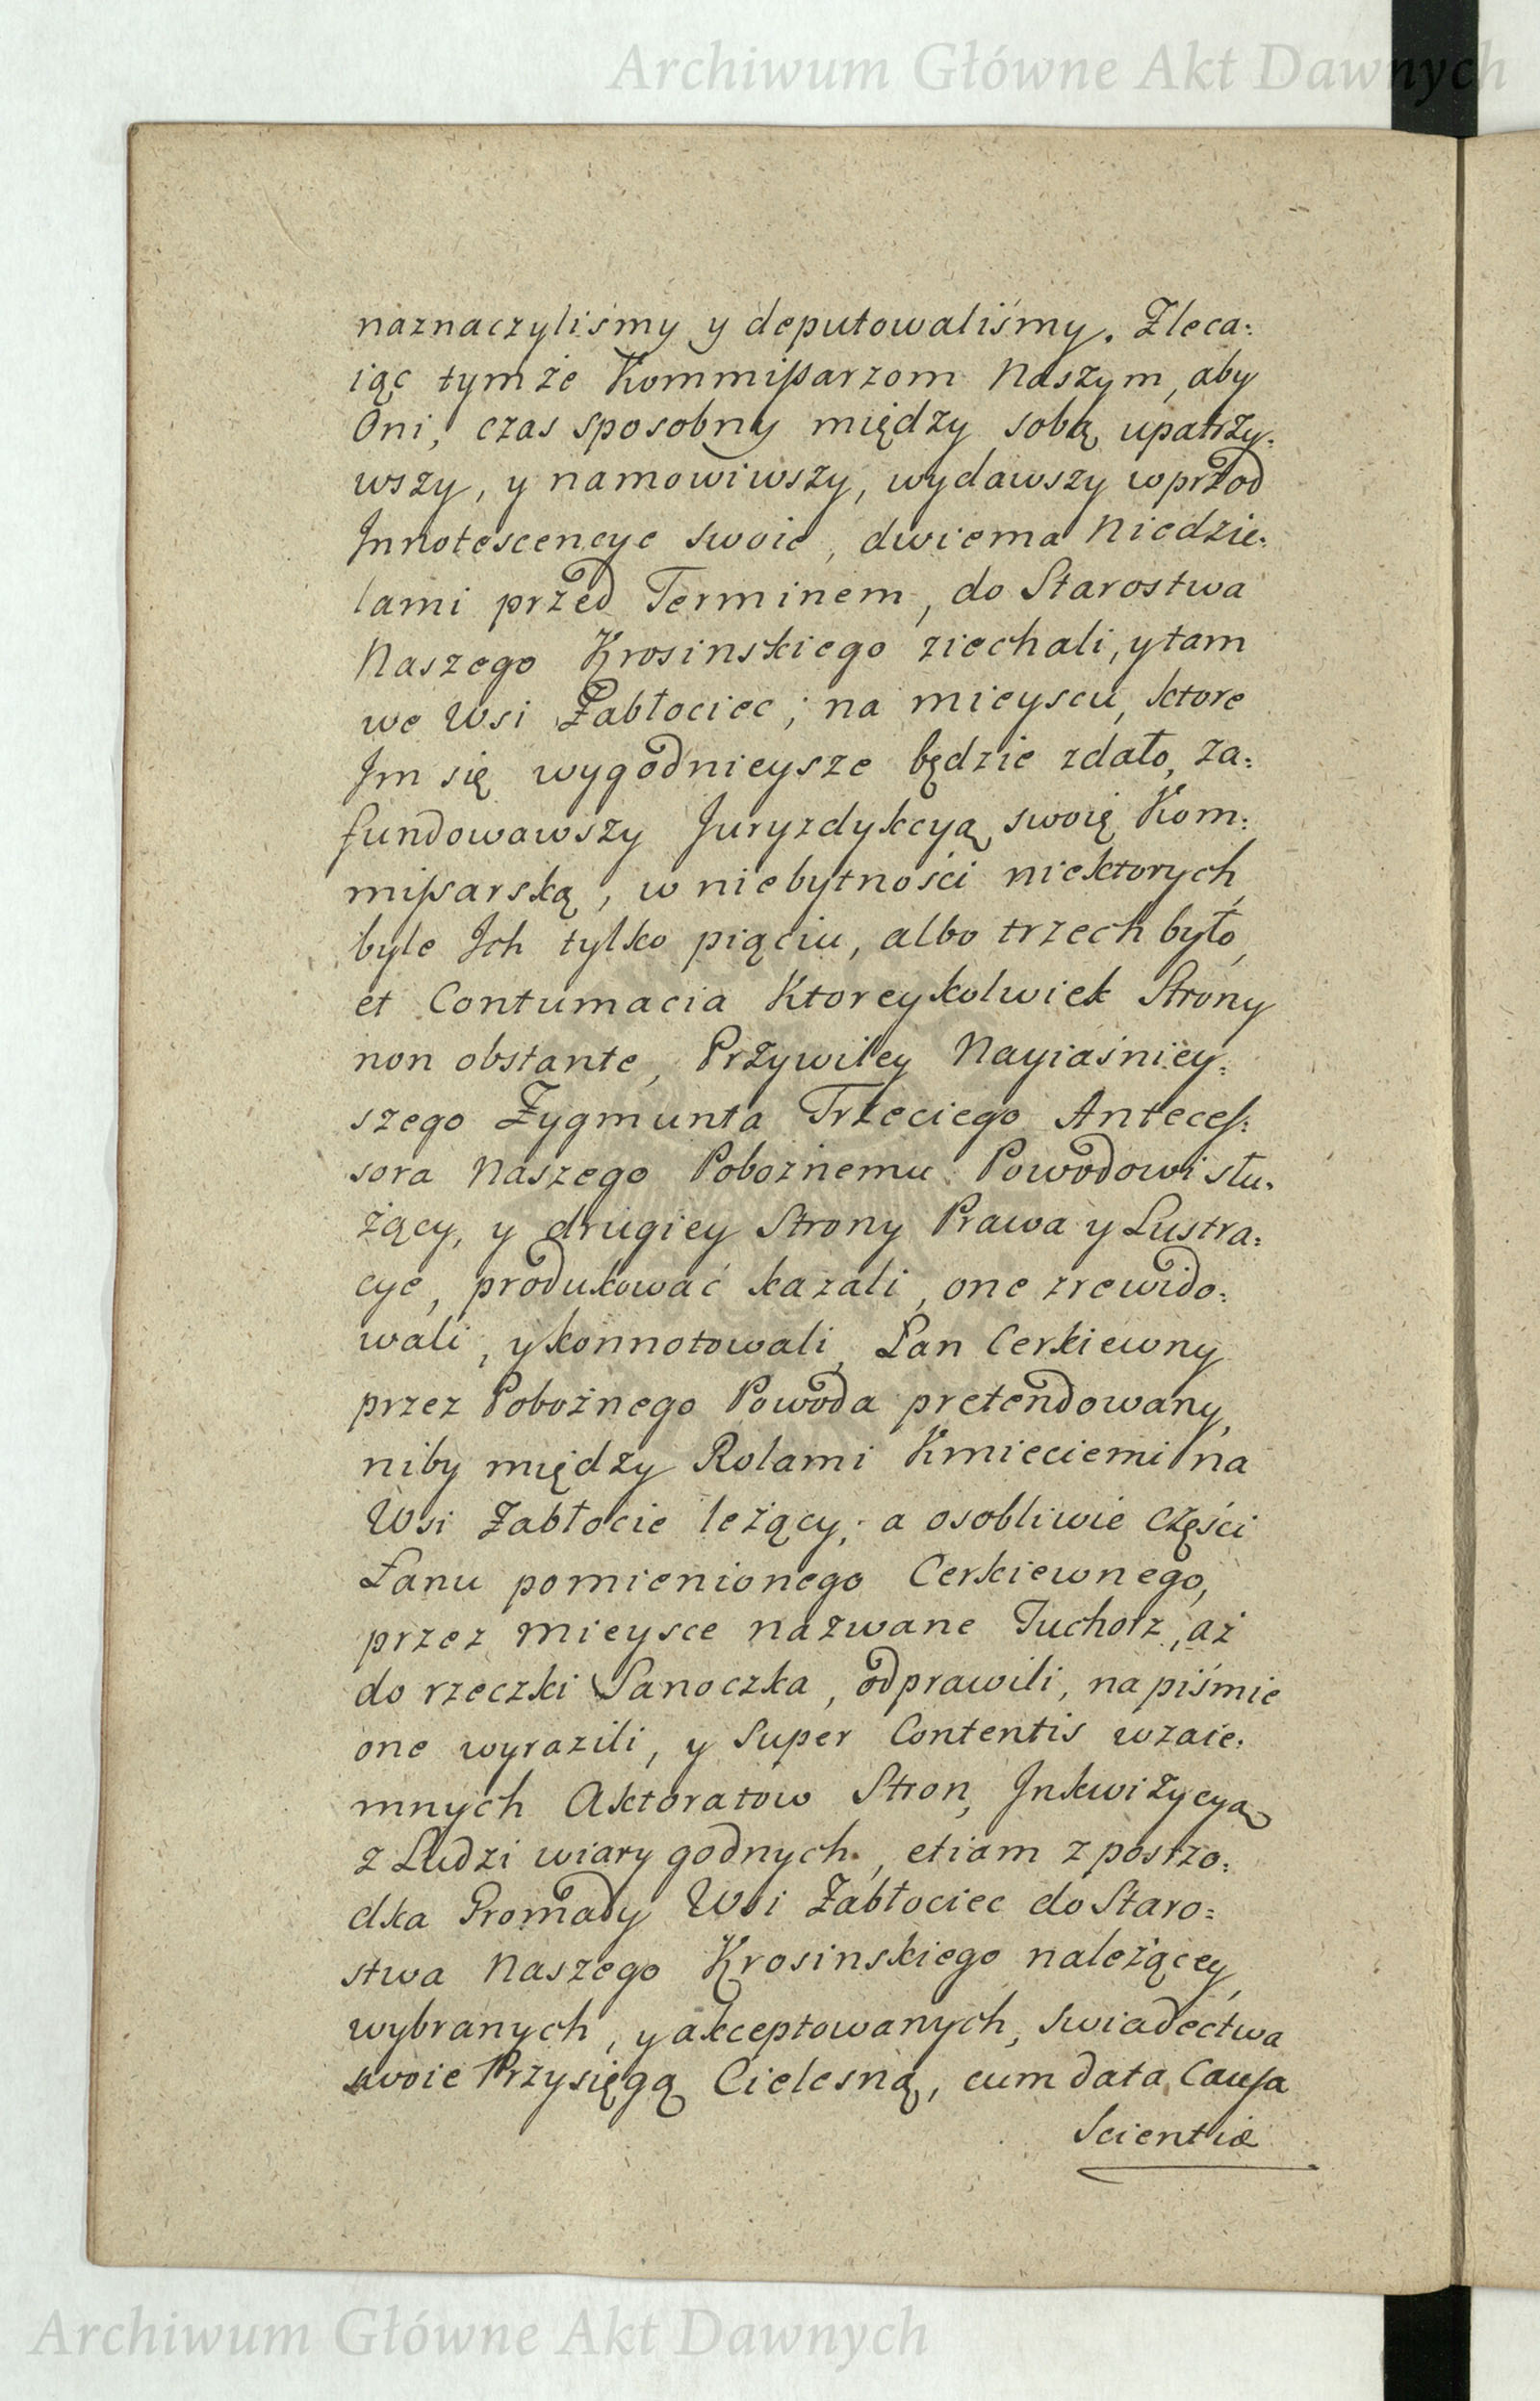 Archiwum Główne Akt Dawnych
naznaczyliśmy y deputowaliśmy. Zleca:
iąc tymże Kommißarzom Naszym, aby
Oni, czas sposobny między sobą upatrzy:
wszy, y namowiwszy, wydawszy wprzod
Innotescencye swoie, dwiema Niedzie:
lami przed Terminem, do Starostwa
Naszego Krosinskiego ziechali, y tam
we Wsi Zabłociec, na mieyscu, ktore
Im się wygodnieysze będzie zdało, za:
fundowawszy Juryzdykcyą swoię Kom:
mißarską, w niebytności niektorych,
byle Ich tylko pięciu, albo trzech było,
et Contumacia Ktoreykolwiek Strony
non obstante, Przywiley Nayiaśniey:
szego Zygmunta Trzeciego Anteceſ:
sora Naszego Pobożnemu Powodowi słu:
żący, y drugiey Strony Prawa y Lustra:
cye, produkować kazali, one zrewido:
wali, y konnotowali, Łan Cerkiewny
przez Pobożnego Powoda pretendowany,
niby między Rolami Kmieciemi na
Wsi Zabłocie leżący, a osobliwie części
Łanu pomienionego Cerkiewnego,
przez mieysce nazwane Tuchorz, aż
do rzeczki Sanoczka, odprawili, na piśmie
one wyrazili, y Super Contentis wzaie:
mnych Aktoratow Stron, Inkwizycyą
z Ludzi wiary godnych, etiam z posrzo:
dka Gromady Wsi Zabłociec do Staro:
stwa Naszego Krosinskiego należącey,
wybranych, y akceptowanych, swiadectwa
swoie Przysięgą Cielesną, cum data Cauſa
Scientiæ
Archiwum Główne Akt Dawnych